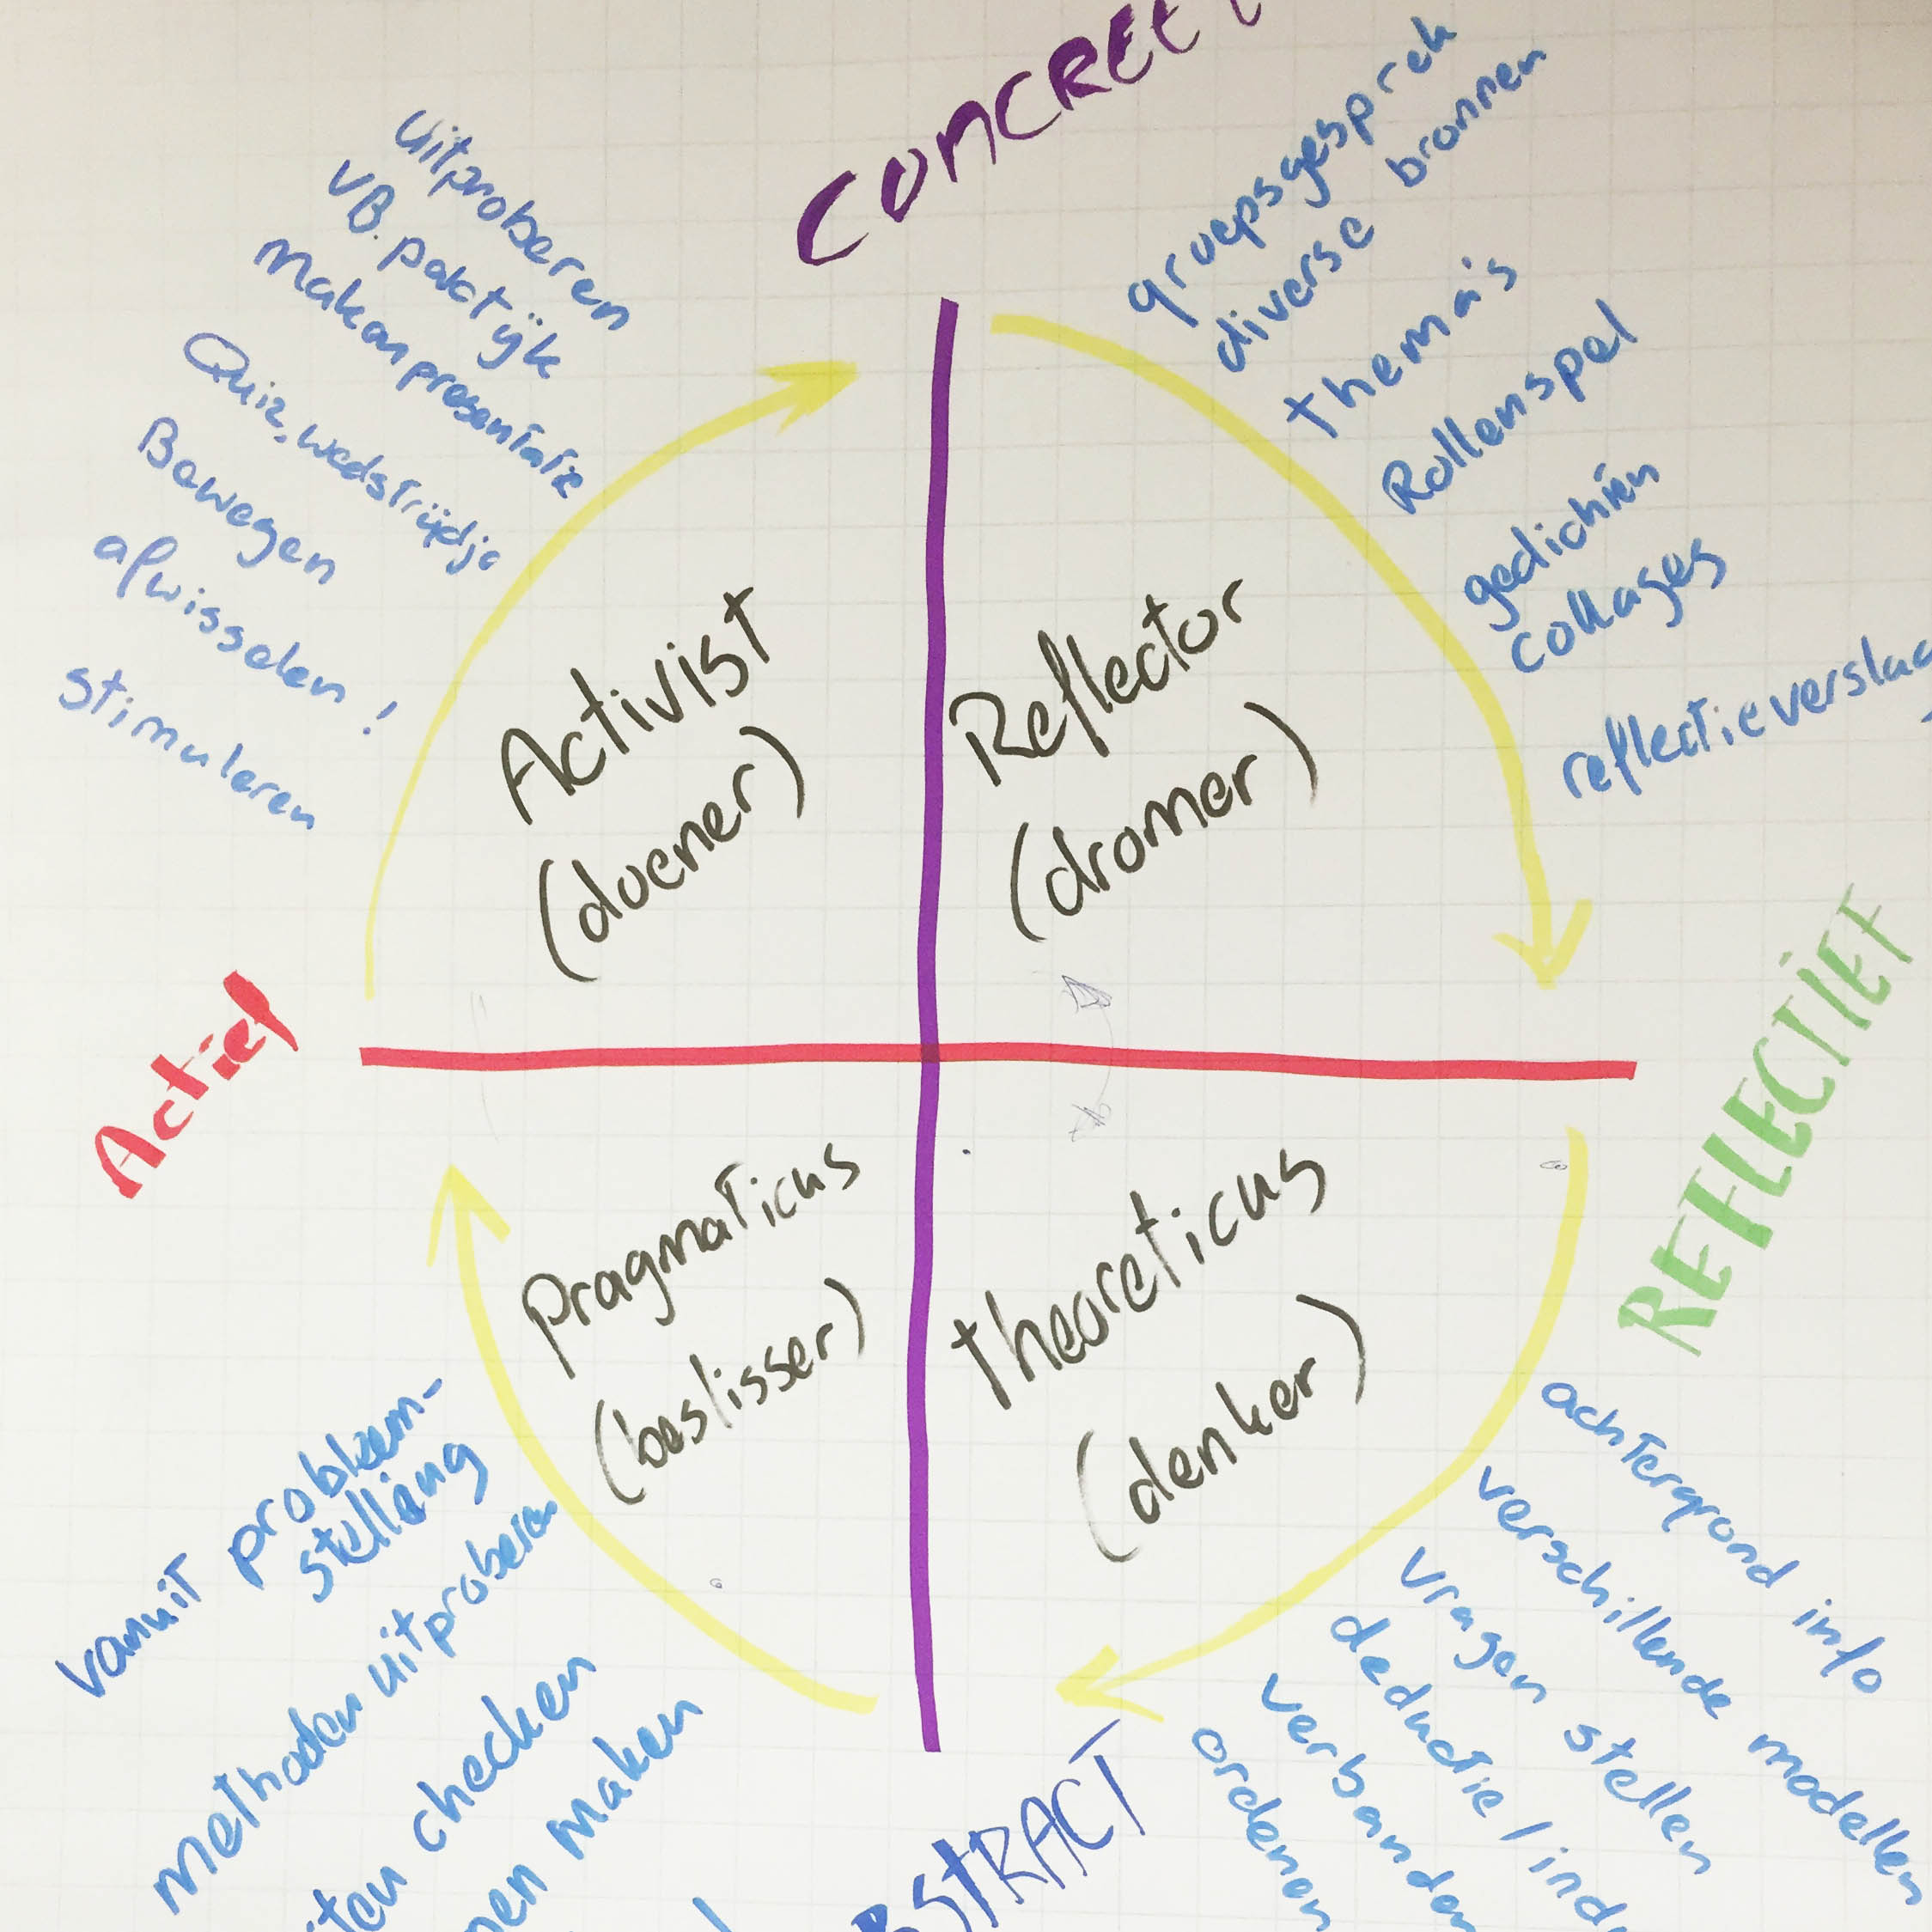 CONCREET
uitproberen
VB. paktijk
maken presentatie
Quiz, wedstrijdje
Bewegen
afwisselen!
stimuleren
groepsgesprek
diverse bronnen
thema's
Rollenspel
gedichten
collages
reflectieverslag
Activist
(doener)
Reflector
(dromer)
Actief
REFLECTIEF
Pragmaticus
(beslisser)
theoreticus
(denker)
vanuit probleem-
stelling
methoden uitproberen
checken
maken
achtergrond info
verschillende modellen
vragen stellen
deductie / indu
verbanden
ordenen
BSTRACT